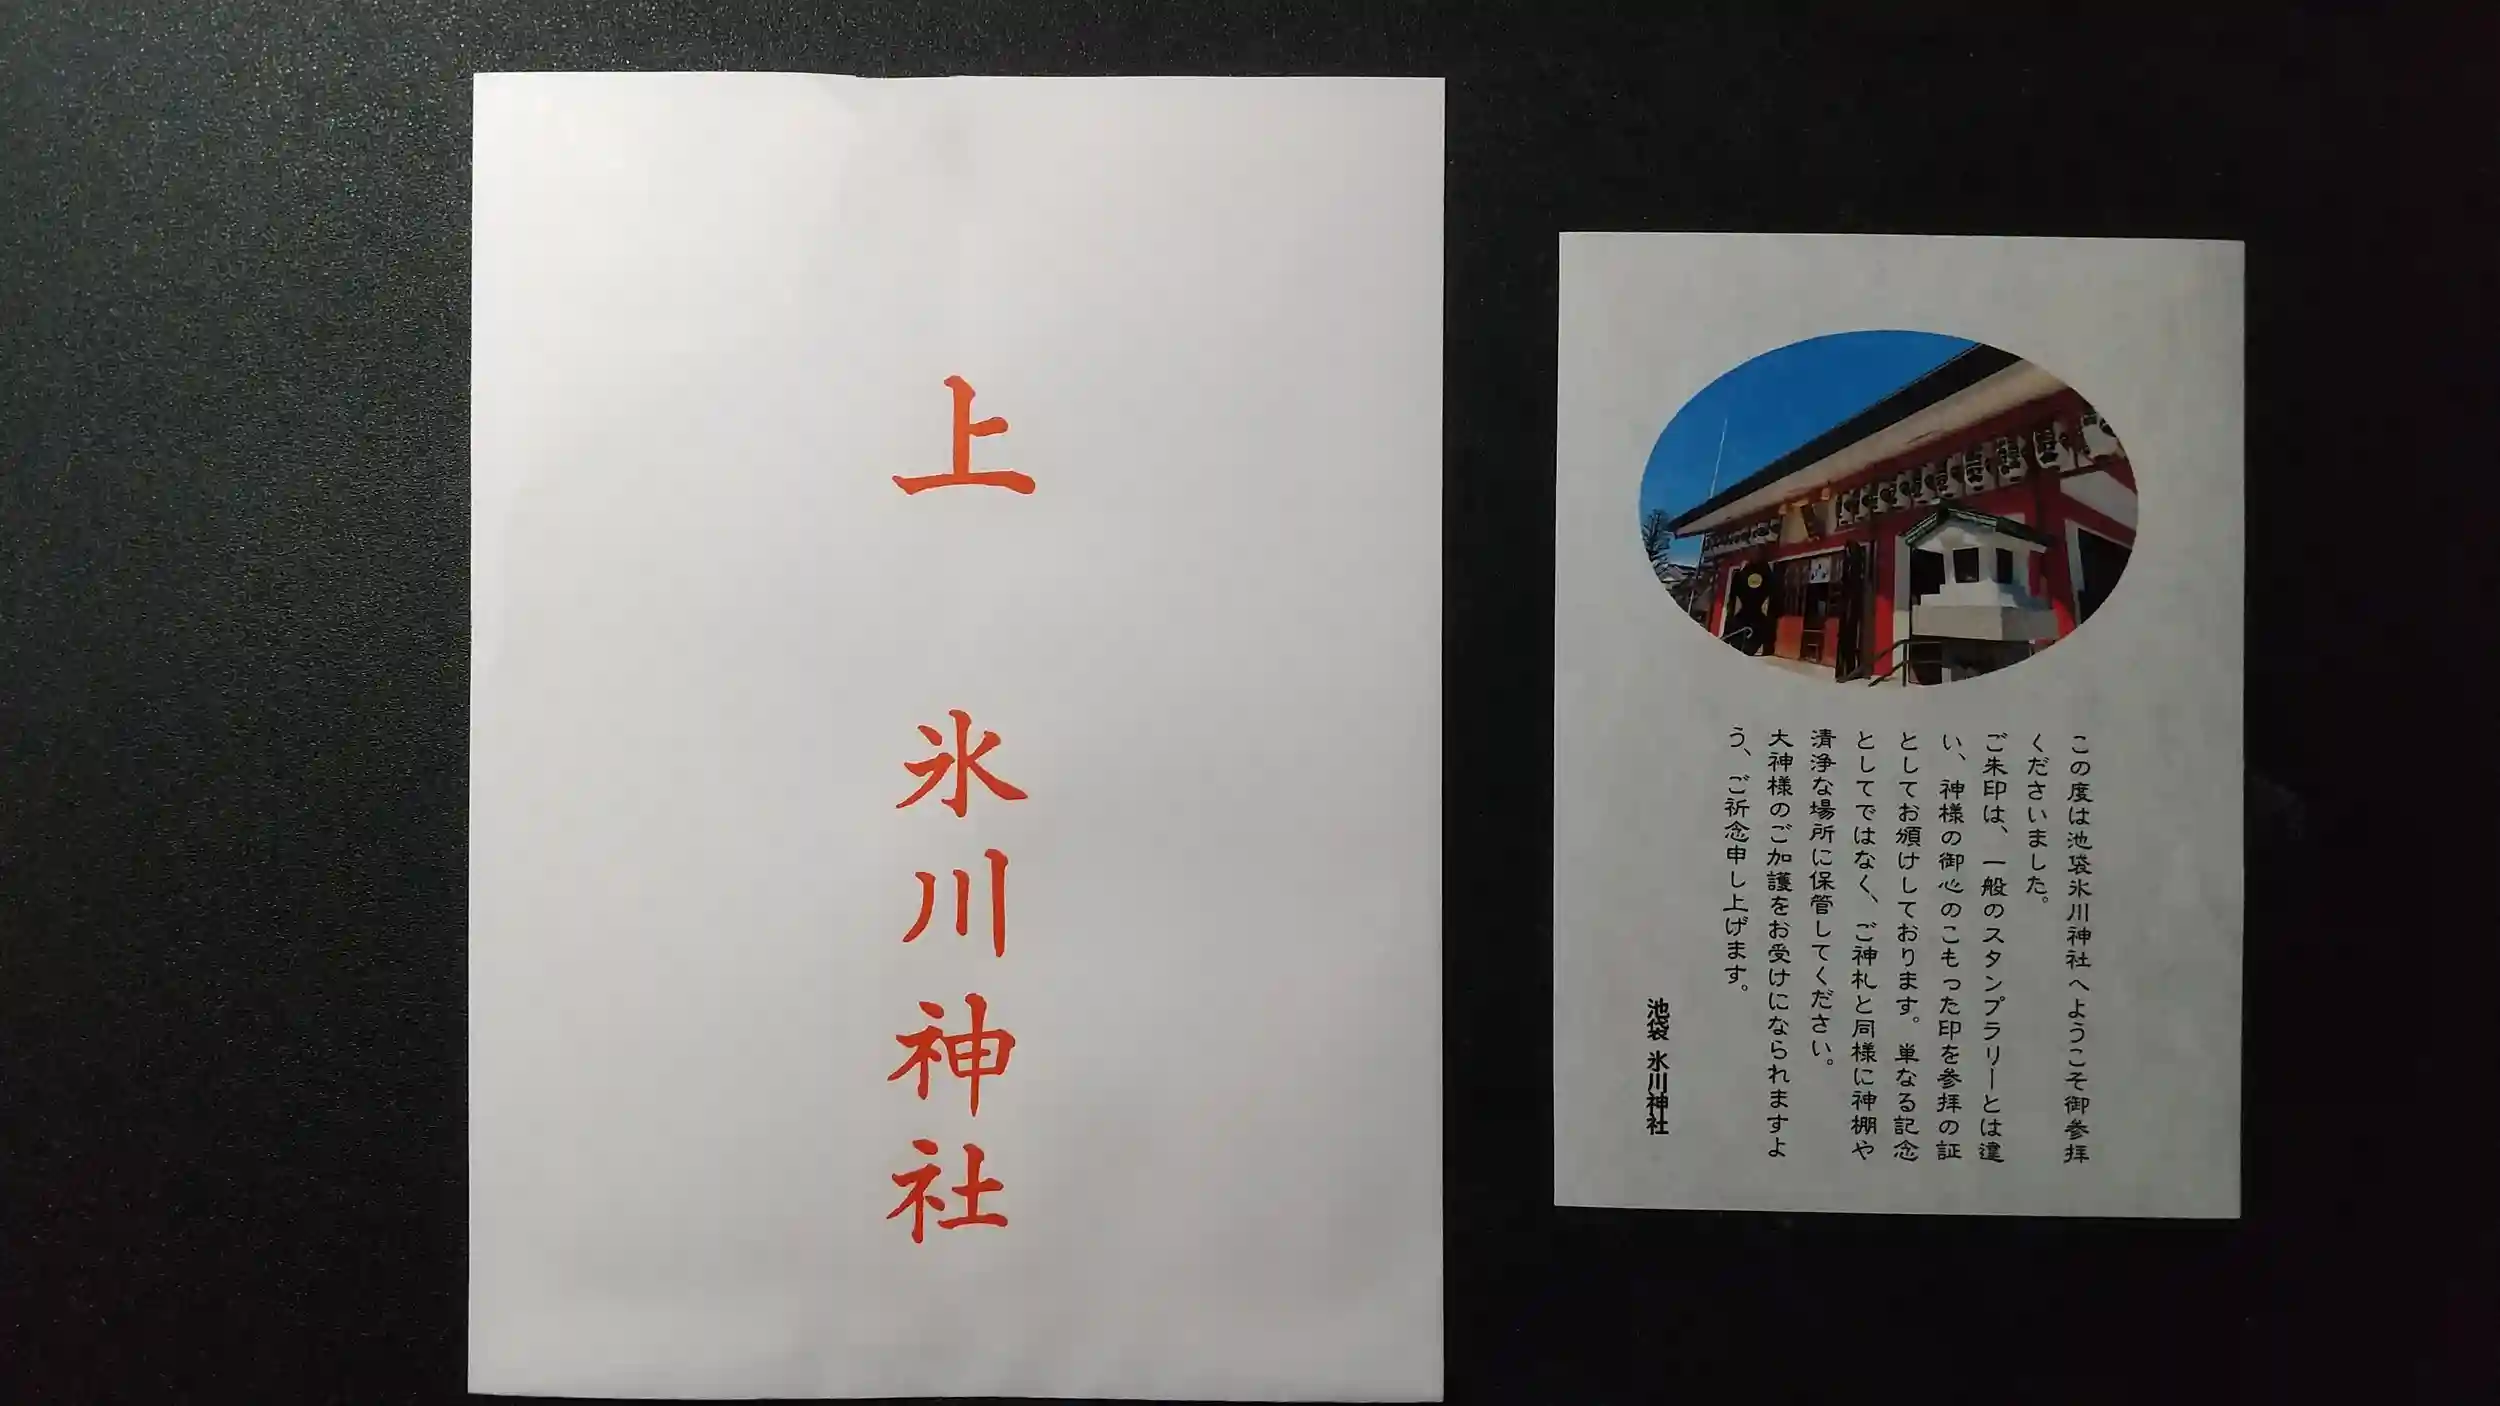 上
氷川神社
この度は池袋氷川神社へようこそ御参拝
くださいました。
ご朱印は、一般のスタンプラリーとは違
い、神様の御心のこもった印を参拝の証
としてお頒けしております。単なる記念
としてではなく、ご神札と同様に神棚や
清浄な場所に保管してください。
大神様のご加護をお受けになられますよ
う、ご祈念申し上げます。
池袋 氷川神社